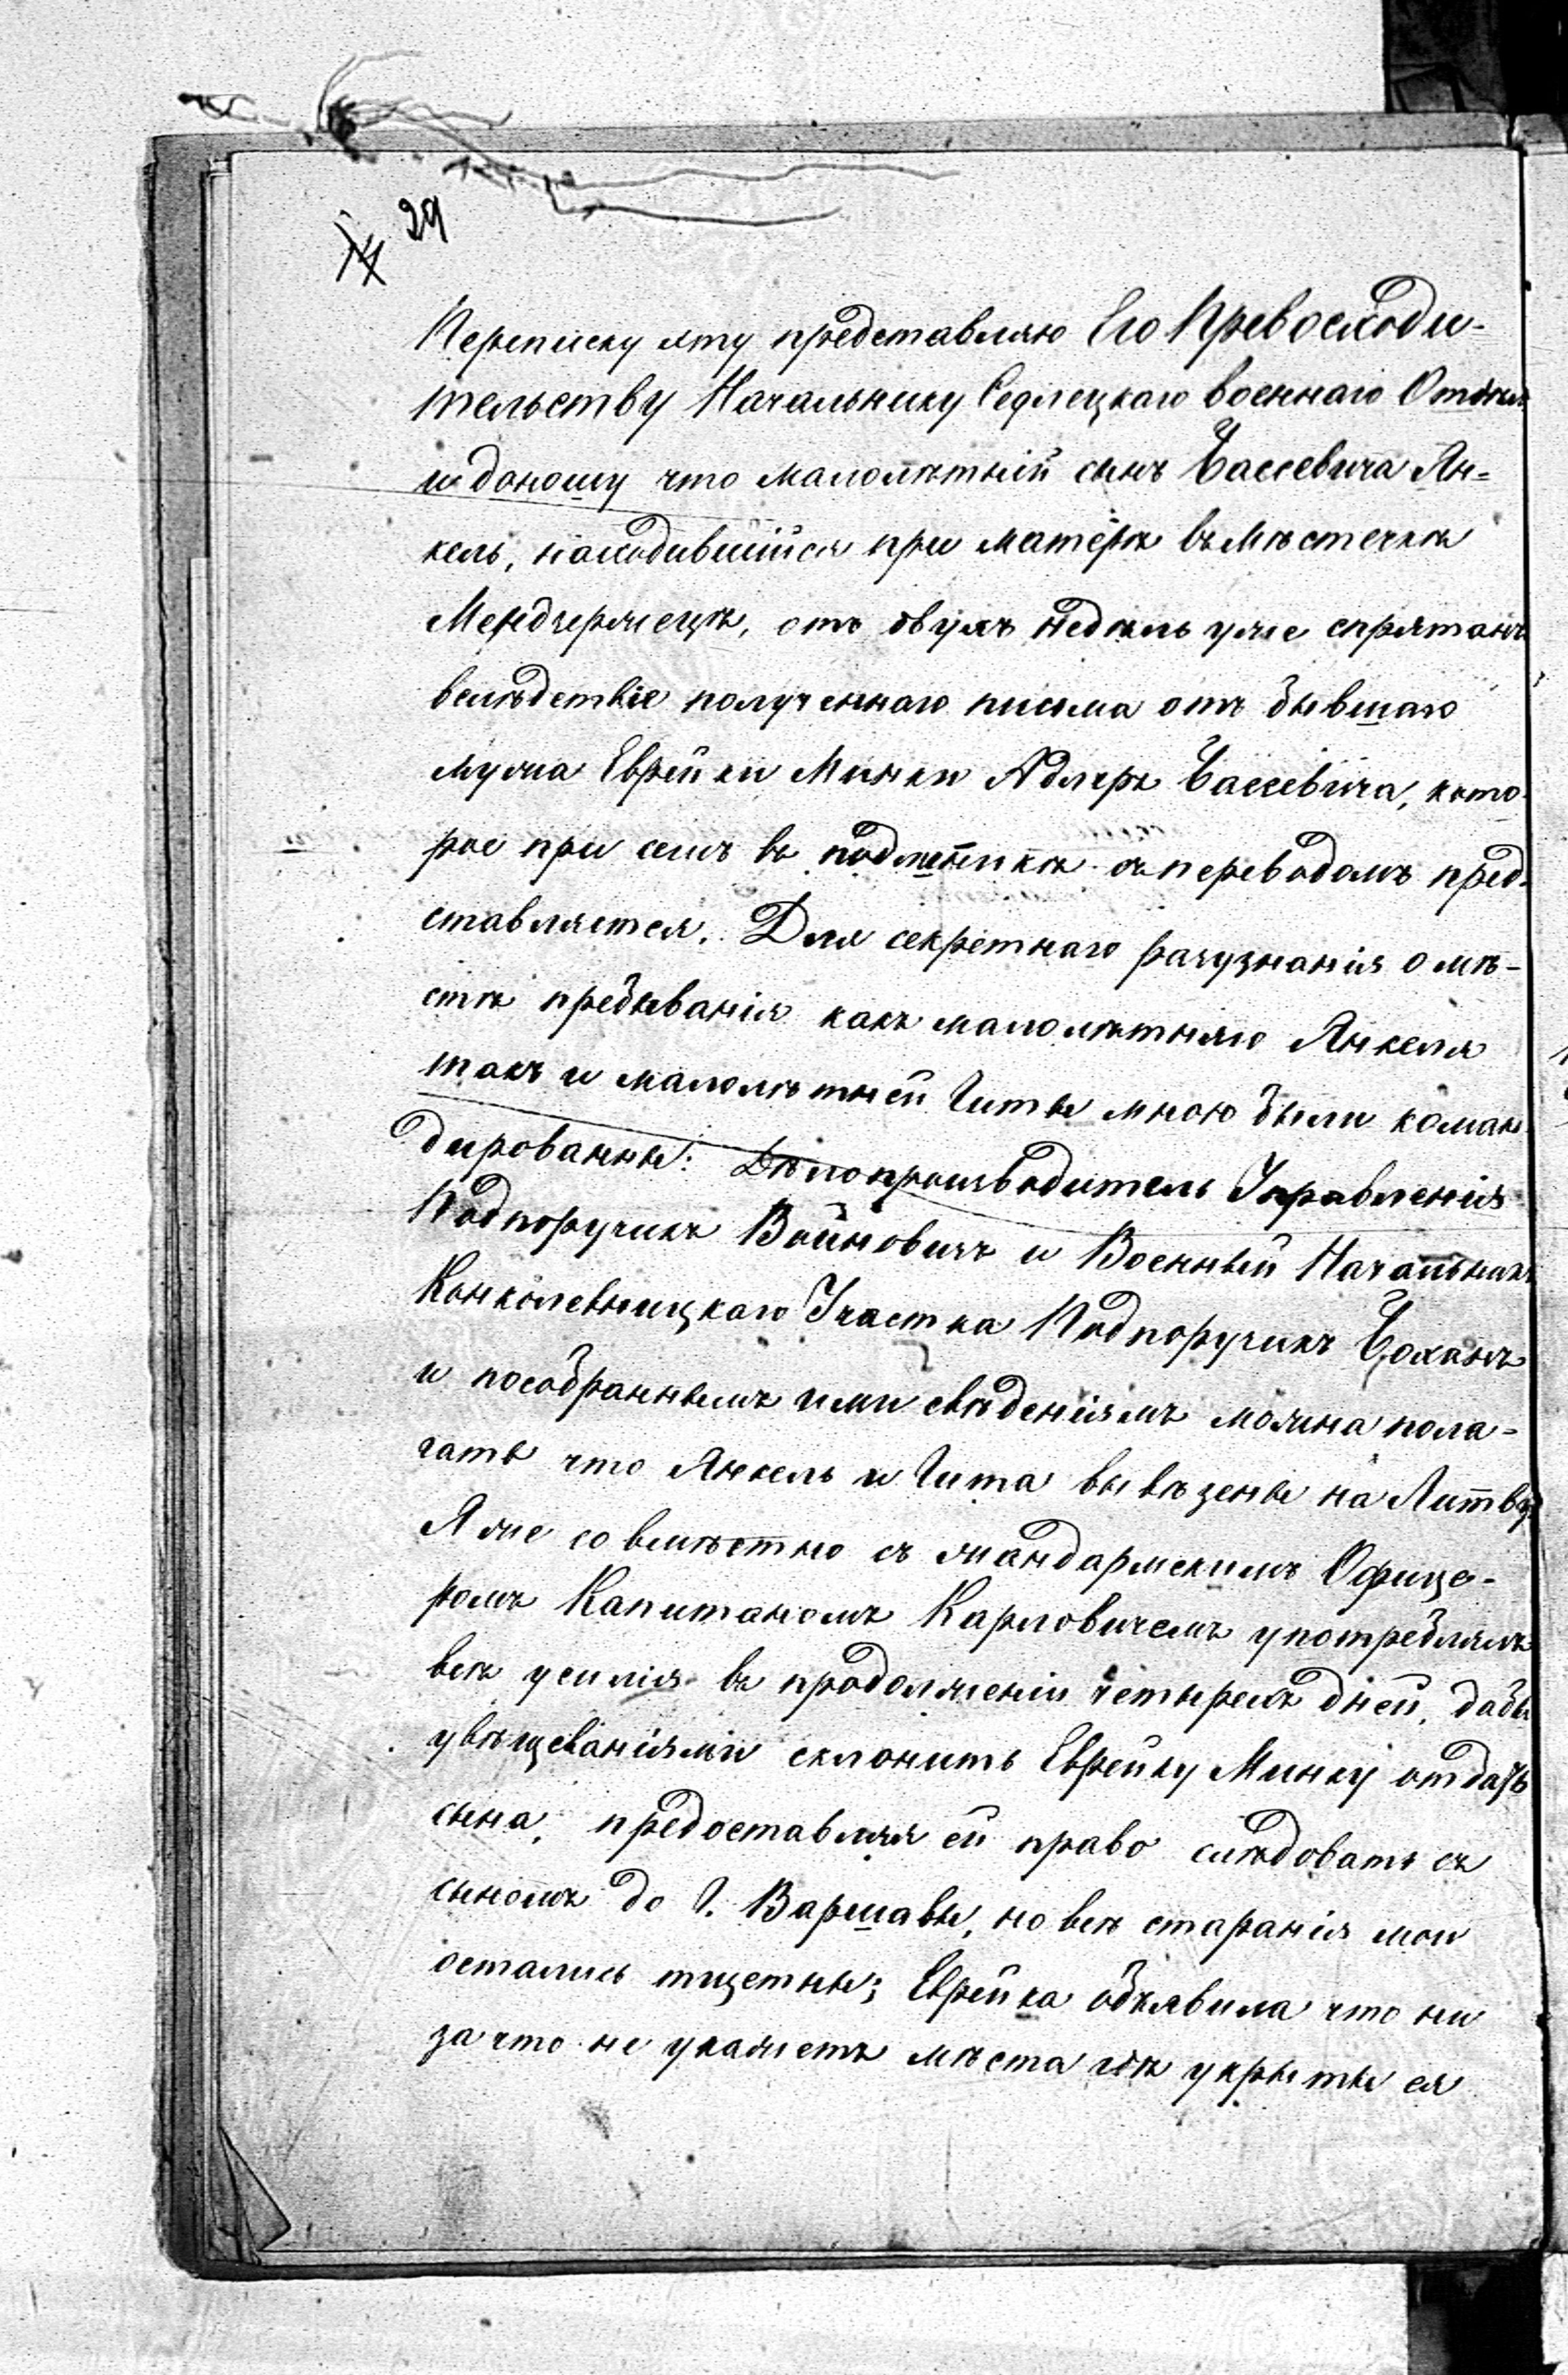 29
Переписку эту представляю Его Превосходи-
тельству Начальнику Седлецкаго военнаго Отдѣла
и доношу что малолѣтній сынъ Бассевича Ян=
кель, находившійся при матерѣ въ мѣстечкѣ
Мендзержецѣ, отъ двухъ недѣль уже спрятанъ
вслѣдствіе полученнаго письма отъ бывшаго
мужа Еврейки Минки Адлеръ Бассевича, кото-
рое при семъ въ подлинникѣ съ переводомъ пред-
ставляется. Для секретнаго разузнанія о мѣ-
стѣ пребыванія какъ малолѣтняго Янкеля
такъ и малолѣтней Гиты мною были коман-
дированы: Дѣлопроизводитель Управленія
Подпоручикъ Войновичъ и Военный Начальникъ
Конколевницкаго Участка Подпоручикъ Боханъ
и по собраннымъ ими свѣденіямъ можна пола-
гать что Янкель и Гита вывѣзены на Литву.
Я же совмѣстно съ жандармскимъ Офице-
ромъ Капитаномъ Карловичемъ употреблялъ
всѣ усилія въ продолженіи четырехъ дней, дабы
увѣщеваніями склонить Еврейку Минку отдать
сына, предоставляя ей право слѣдовать съ
сыномъ до Г. Варшавы, но всѣ старанія мои
остались тщетны; Еврейка объявила что ни
за что не укажетъ мѣста гдѣ укрыты ея